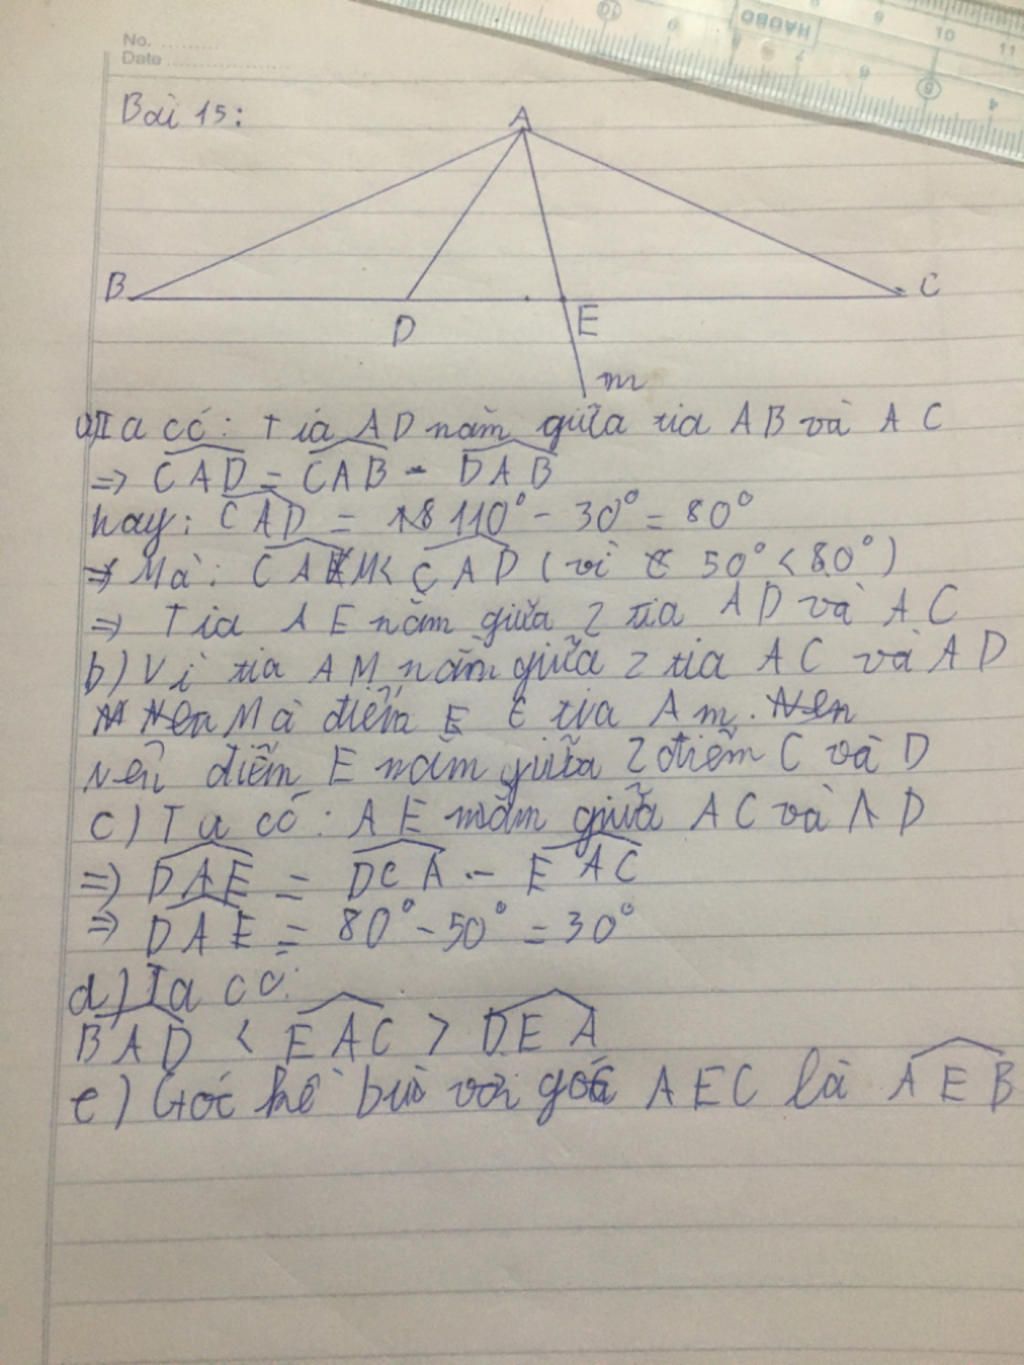 No. ..........
Date ....................
HAOBO
10
11
Bài 15:
A
B
C
D
E
m
a) Ta có: Tia AD nằm giữa tia AB và AC
=> CAD = CAB - DAB
hay: CAD = 110° - 30° = 80°
Mà: CAM < CAD (vì 50° < 80°)
=> Tia AE nằm giữa 2 tia AD và AC
b) Vì tia AM nằm giữa 2 tia AC và AD
Mà điểm E ∈ tia Am.
Nên điểm E nằm giữa 2 điểm C và D
c) Ta có: AE nằm giữa AC và AD
=> DAE = DCA - EAC
=> DAE = 80° - 50° = 30°
d) Ta có:
BAD < EAC > DEA
e) Góc kề bù với góc AEC là AEB